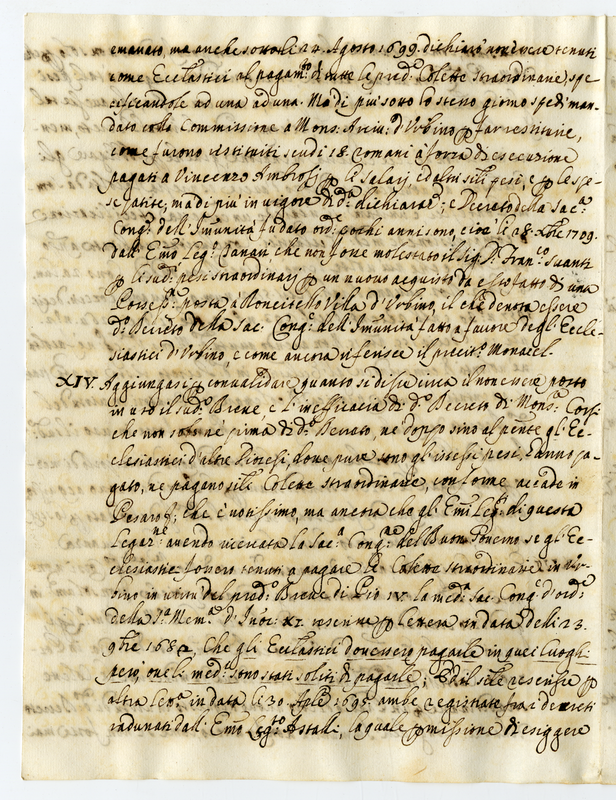 emanato, ma anche sotto li 24. Agosto 1699. dichiarò non essere tenuti
come Ecclesiastici al pagam.to di tutte le pred.e Colette straordinarie, spe
cificandole ad una ad una. Ma di più sotto lo stesso giorno spedì man-
dato colla Commissione a Mons. Arciv.o d'Urbino p far restituire,
come furono restituiti scudi 18. romani à forza di esecuzione
pagati a Vincenzo Ambrosj p li salarj, ed altri simili pesi, e p le spe-
se patite, ma di più in vigore di d.a dichiaraz.e, e Decreto della Sac.a
Cong.e dell'Imunità fu dato ord.e pochi anni sono, cioè li 28. Xbre 1709.
dall'Emo Leg.o Tanari che non fosse molestato il Sig.r D. Fran.co Suanti
p li sud.i pesi straordinarj p un nuovo acquisto da esso fatto di una
Possess.e posta a Roncitello Villa d'Urbino, il che denota essere
d.o Decreto della Sac. Cong.e dell'Imunità fatto a favore degl'Eccle-
siastici d'Urbino, e come ancora riferisce il precit.o Monacel.
XIV. Aggiungasi p convalidare quanto si disse circa il non essere posto
in uso il sud.o Breve, e l'inefficacia di d.o Decreto di Mons.r Corsi
che non solo ne prima di d.o Decreto, ne doppo sino al pnte gl'Ec-
clesiastici d'altre Diocesi, dove pure sono gl'istessi pesi, hanno pa-
gato, ne pagano simili Colette straordinarie, conforme accade in
Pesaro, che è notissimo, ma ancora che gl'Emi Leg.ti di questa
Legaz.ne avendo ricercata la Sac.a Cong.ne del Buon Governo se gl'Ec-
clesiastici fossero tenuti a pagare le Colette straordinarie in Ur-
bino in vigor del pred.o Breve di Pio IV. la med.a Sac. Cong.e d'ord.e
della S.a Mem.a d'Inoc. XI. rescrisse p lettera in data delli 23.
9bre 1682, Che gli Ecclesiastici dovessero pagarle in quei luoghi
però, ove li med.i sono stati soliti di pagarle; Ed il simile rescrisse p
altra let.a in data li 30. Aple 1695. ambe registrate fra i decreti
radunati dall'Emo Leg.to Astalli, la quale pmissione di esiggere